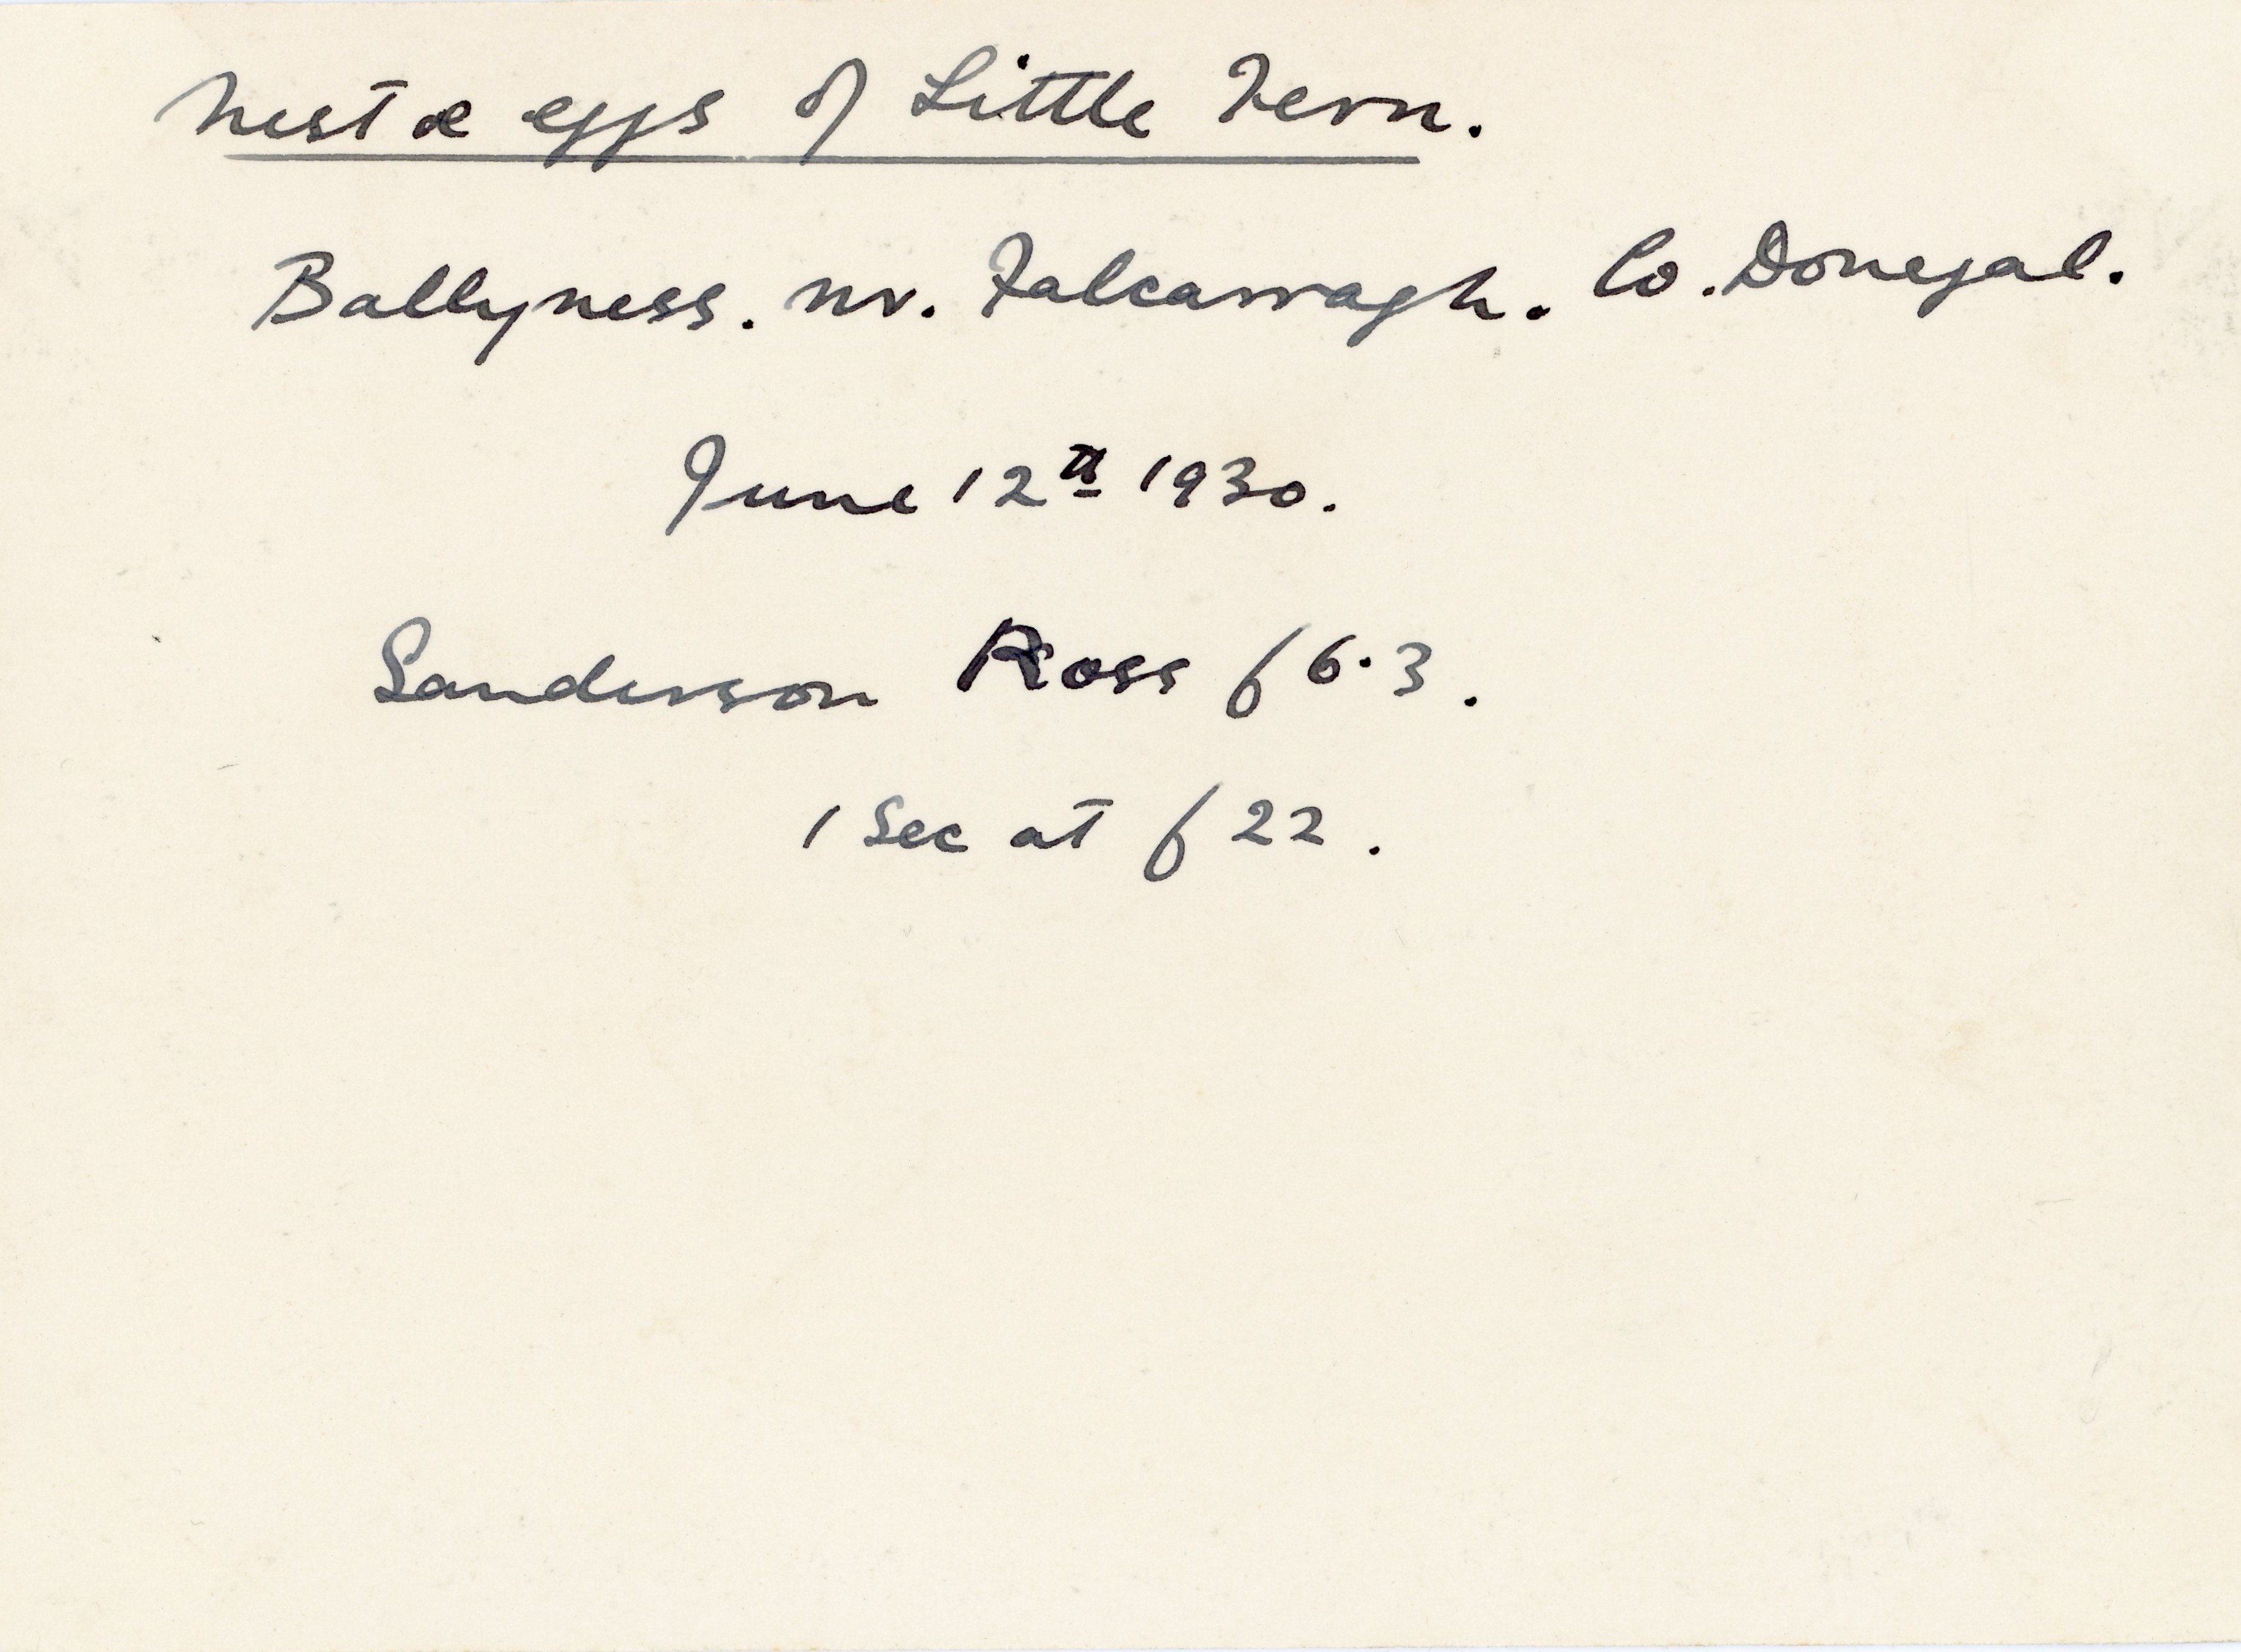 Nest & eggs of Little Tern.
Ballyness. nr. Falcarragh. Co. Donegal.
June 12th 1930.
Sanderson Ross f 6.3.
1 Sec at f 22.